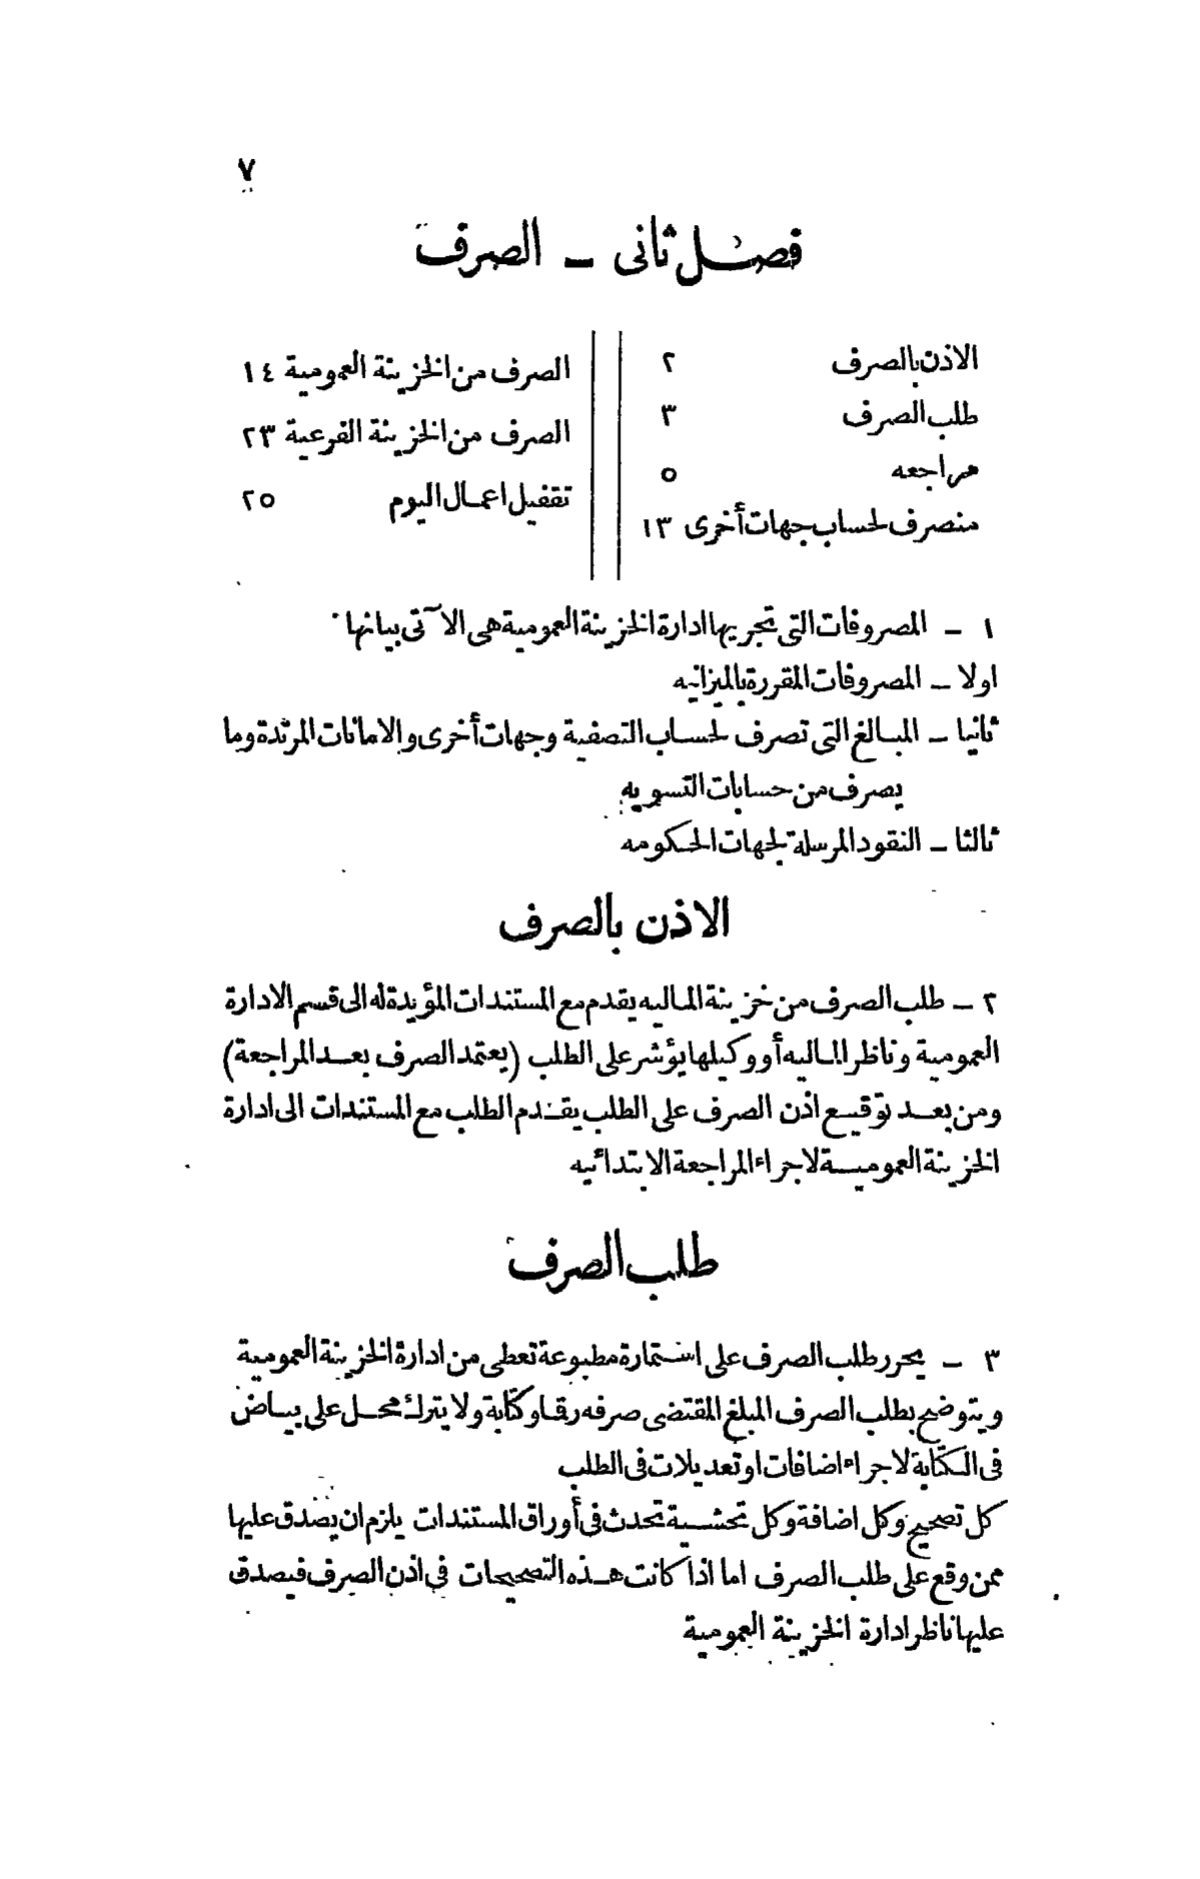 ٧
فصل ثانى – الصرف
الاذن بالصرف ٢
طلب الصرف ٣
مراجعه ٥
منصرف لحساب جهات أخرى ١٣
الصرف من الخزينة العمومية ١٤
الصرف من الخزينة الفرعية ٢٣
تقفيل اعمال اليوم ٢٥
١ – المصروفات التى تجريها ادارة الخزينة العمومية هى الآتى بيانها
اولا – المصروفات المقررة بالميزانيه
ثانيا – المبالغ التى تصرف لحساب التصفية وجهات أخرى والامانات المرتدة وما
يصرف من حسابات التسويه
ثالثا – النقود المرسلة لجهات الحكومه
الاذن بالصرف
٢ – طلب الصرف من خزينة الماليه يقدم مع المستندات المؤيدة له الى قسم الادارة
العمومية وناظر الماليه أو وكيلها يؤشر على الطلب (يعتمد الصرف بعد المراجعة)
ومن بعد توقيع اذن الصرف على الطلب يقدم الطلب مع المستندات الى ادارة
الخزينة العمومية لاجراء المراجعة الابتدائيه
طلب الصرف
٣ – يحرر طلب الصرف على استمارة مطبوعة تعطى من ادارة الخزينة العمومية
ويتوضح بطلب الصرف المبلغ المقتضى صرفه رقما وكتابة ولا يترك محل على بياض
فى الكتابة لاجراء اضافات او تعديلات فى الطلب
كل تصحيح وكل اضافة وكل تحشية تحدث فى أوراق المستندات يلزم ان يصدق عليها
ممن وقع على طلب الصرف اما اذا كانت هذه التصحيحات فى اذن الصرف فيصدق
عليها ناظر ادارة الخزينة العمومية